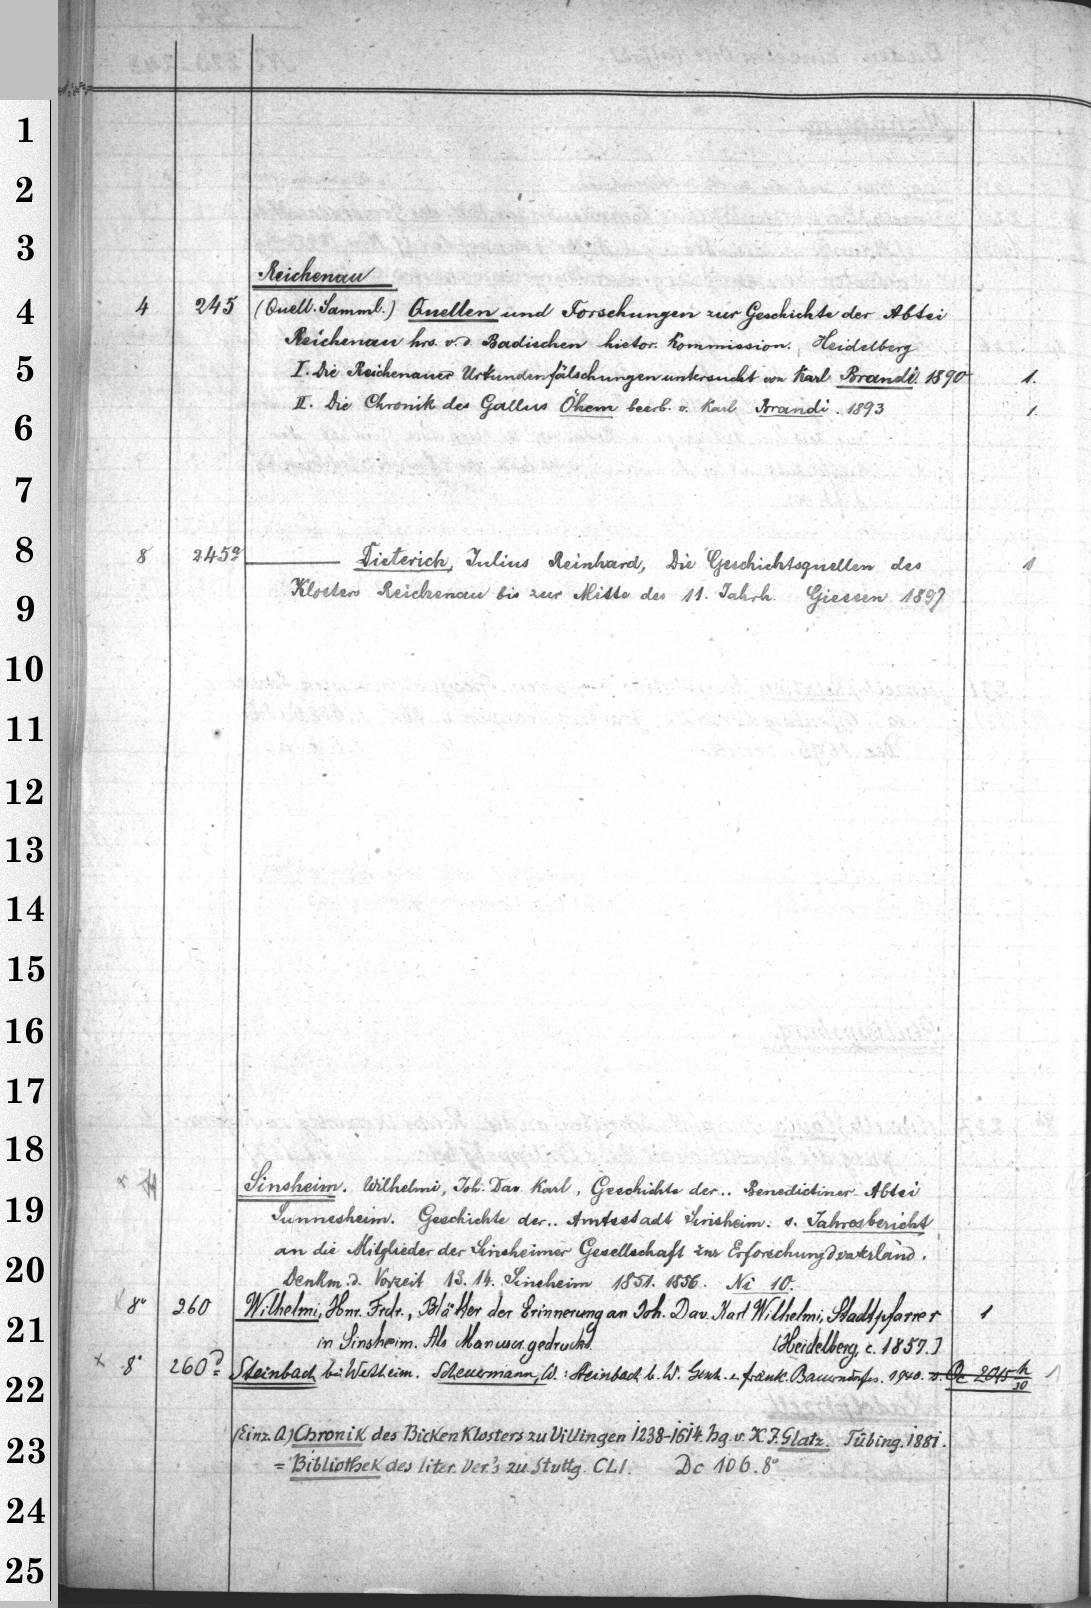 Reichenau
4 245 (Quell. Samml.) Quellen und Forschungen zur Geschichte der Abtei
Reichenau hrs. v. d. Badischen histor. Kommission. Heidelberg
I. Die Reichenauer Urkundenfälschungen untersucht von Karl Brandi. 1890 1.
II. Die Chronik des Gallus Öhem bearb. v. Karl Brandi. 1893 1.
8 245a ——— Dieterich, Julius Reinhard, Die Geschichtsquellen des 1
Klosters Reichenau bis zur Mitte des 11. Jahrh. Giessen 1897
Sinsheim. Wilhelmi, Joh. Dav. Karl, Geschichte der.. Benedictiner Abtei
Sunnesheim. Geschichte der.. Amtsstadt Sinsheim. s. Jahresbericht
an die Mitglieder der Sinsheimer Gesellschaft zur Erforschung d vaterländ.
Denkm. d. Vorzeit 13. 14. Sinsheim 1851. 1856. Ni 10.
8° 260 Wilhelmi, Hnr. Frdr., Blätter der Erinnerung an Joh. Dav. Karl Wilhelmi, Stadtpfarrer 1
in Sinsheim. Als Manuscr. gedruckt. [Heidelberg, c. 1857.]
x 8° 260a Steinbach bei Wertheim. Scheuermann, W.: Steinbach b. W. Gesch. e. fränk. Bauerndorfes. 1940. 1
(Einz. A) Chronik des Bickenklosters zu Villingen 1238-1614. hg. v. K. J. Glatz. Tübing. 1881.
= Bibliothek des liter. Ver's zu Stuttg. CLI. Dc 106. 8°
1
2
3
4
5
6
7
8
9
10
11
12
13
14
15
16
17
18
19
20
21
22
23
24
25